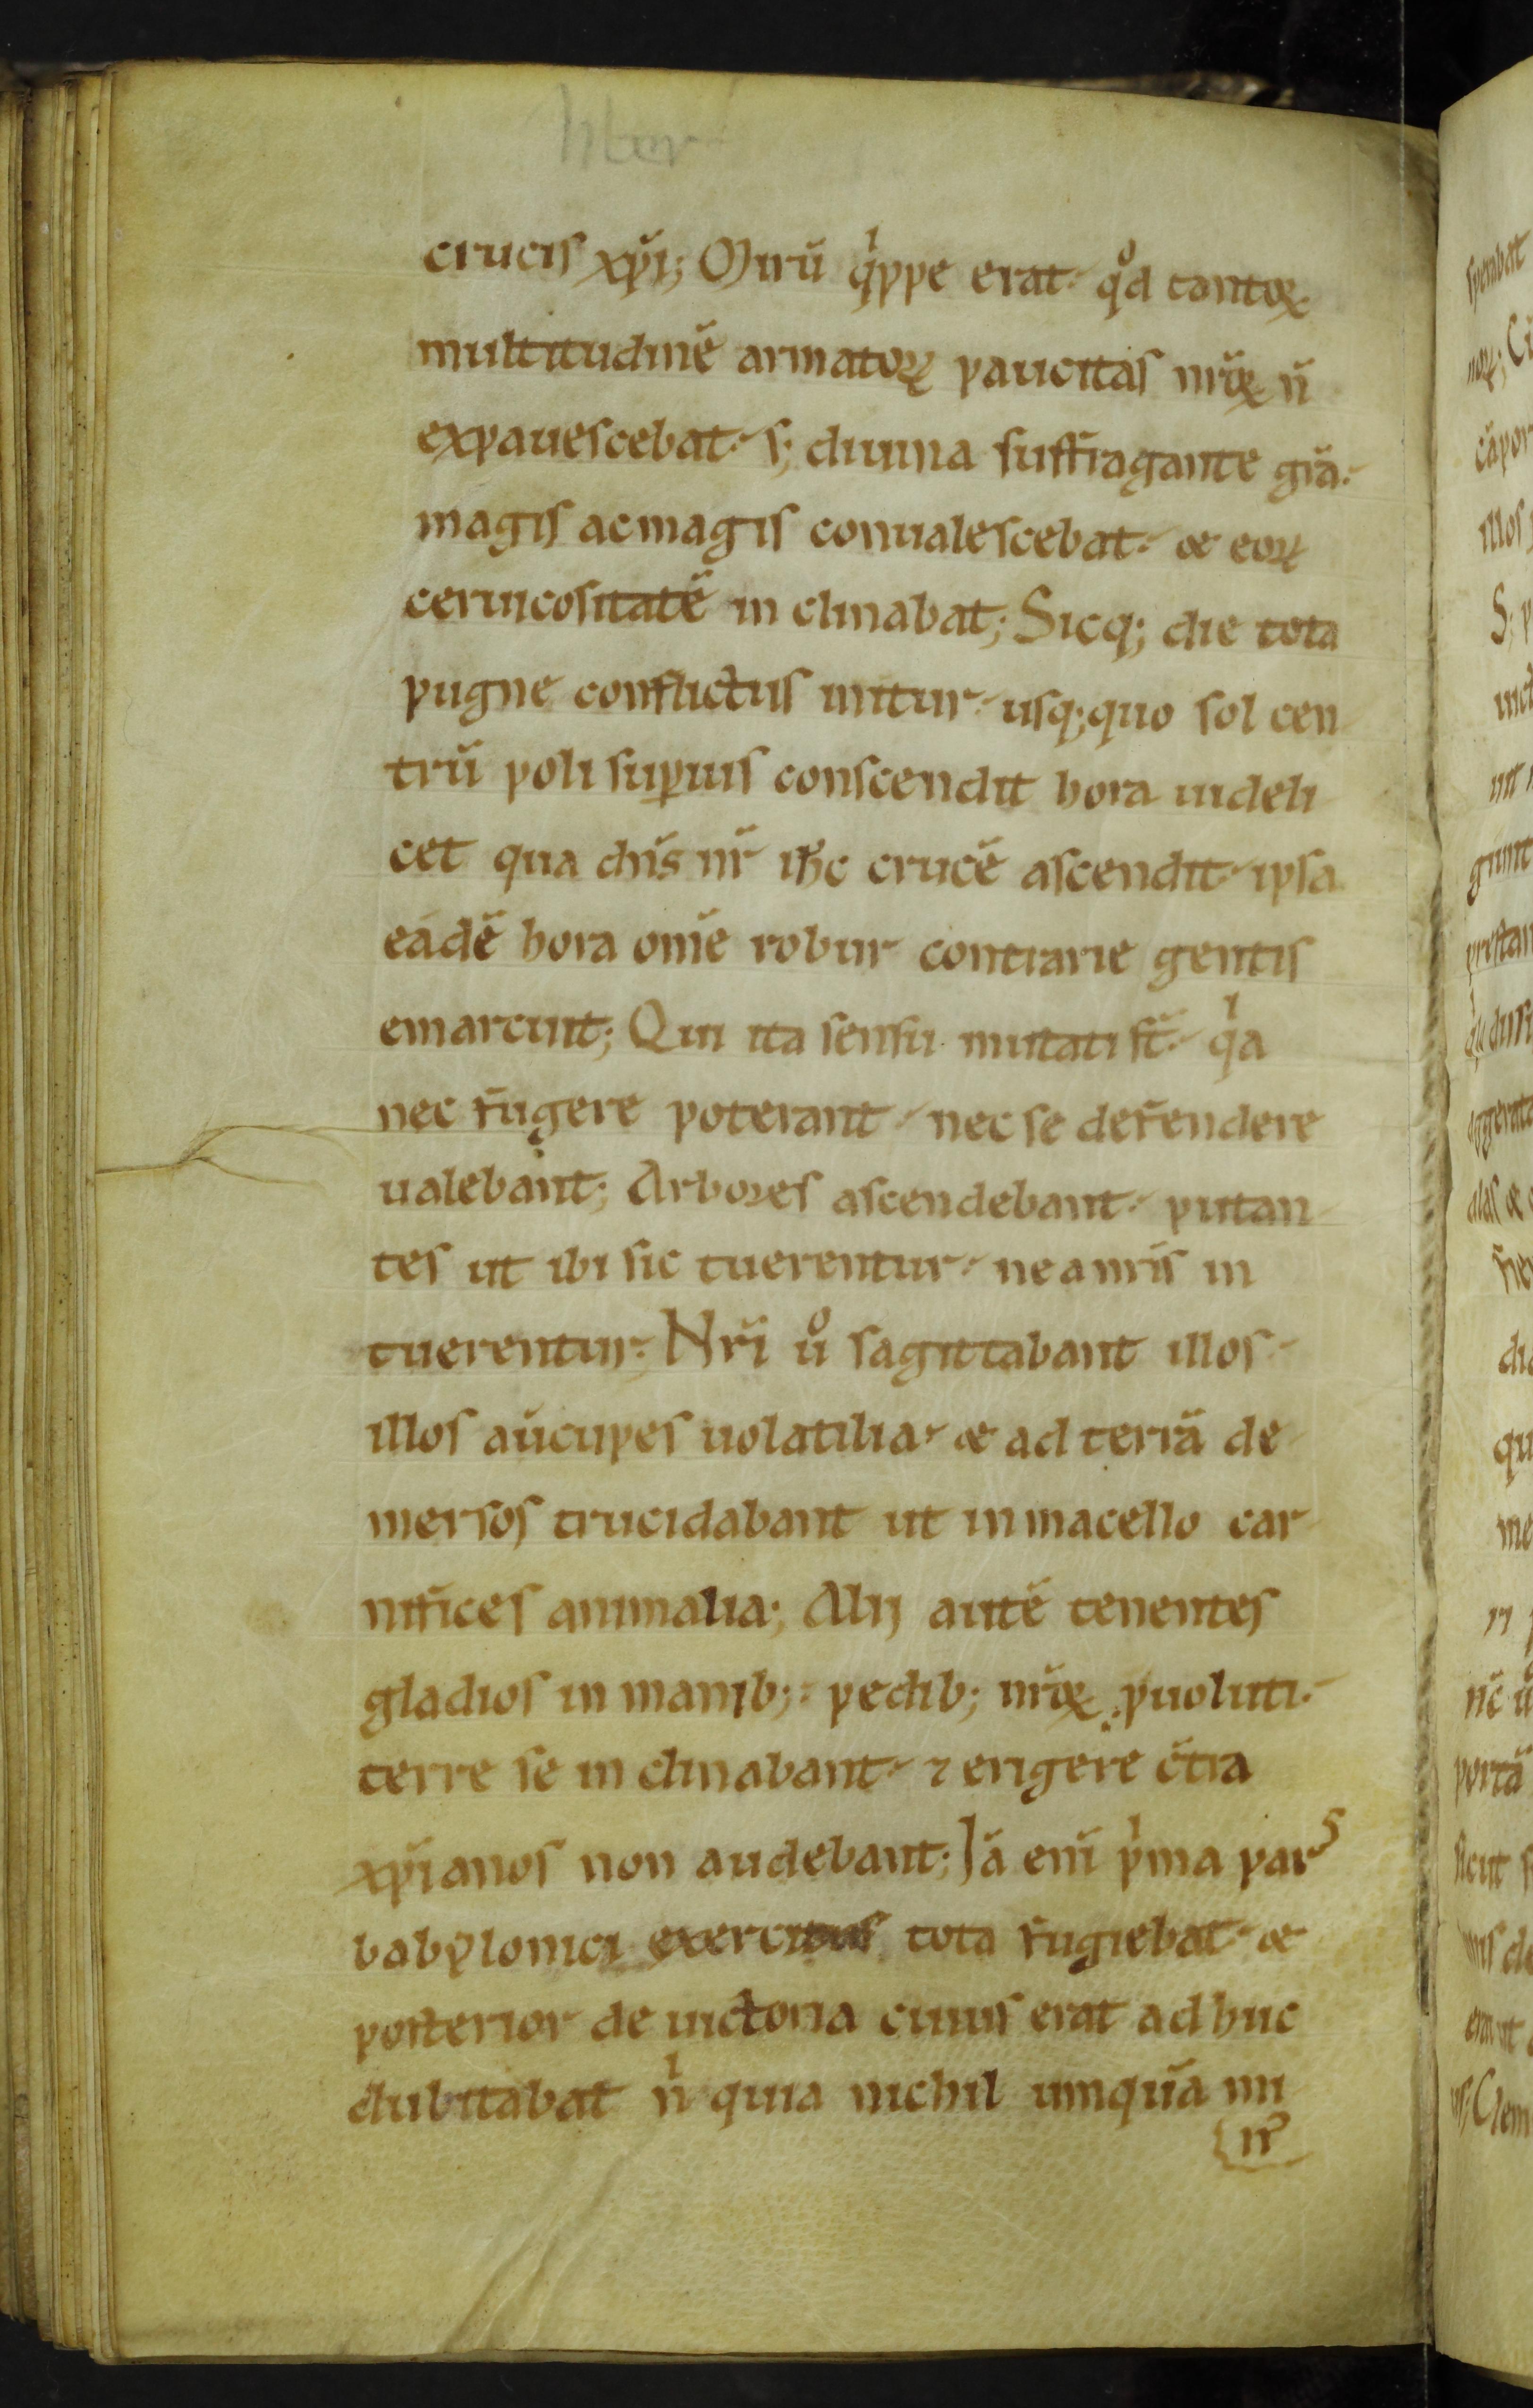 liber
crucis xp̃i; Mirũ qͥppe erat· qͦd tantoꝝ
multitudinẽ armatoꝝ paucitas nr̃oꝝ ñ
expauescebat· s; diuina suffragante gr̃a·
magis acmagis conualescebat· & eoꝝ
ceruicositatẽ in clinabat; Sicq; die tota
pugne conflictus initur· usq;quo sol cen
trũ poli suꝑuis conscendit hora uideli
cet qua dñs nr̃ ihc̃ crucẽ ascendit· ipsa
eadẽ hora om̃e robur contrarie gentis
emarcuit; Qui ita sensu mutati st̃· qͥa
nec fugere poterant· nec se defendere
ualebant; Arbores ascendebant· putan
tes ut ibi sic tuerentur· ne a nr̃is in
tuerentur· Nr̃i uͦ sagittabant illos·
illos aucupes uolatilia· & ad terrã de
mersos trucidabant ut in macello car
nifices animalia; Alij autẽ tenentes
gladios in manib; pedib; nr̃oꝝ ꝓuoluti·
terre se in clinabant· ⁊ erigere c̃tra
xp̃ianos non audebant; Iã eni᷈ pͥma pars
babylonici exercitus tota fugiebat· &
posterior de uictoria cuius erat ad huc
dubitabat nͥ quia nichil umquã mi
nꝰ